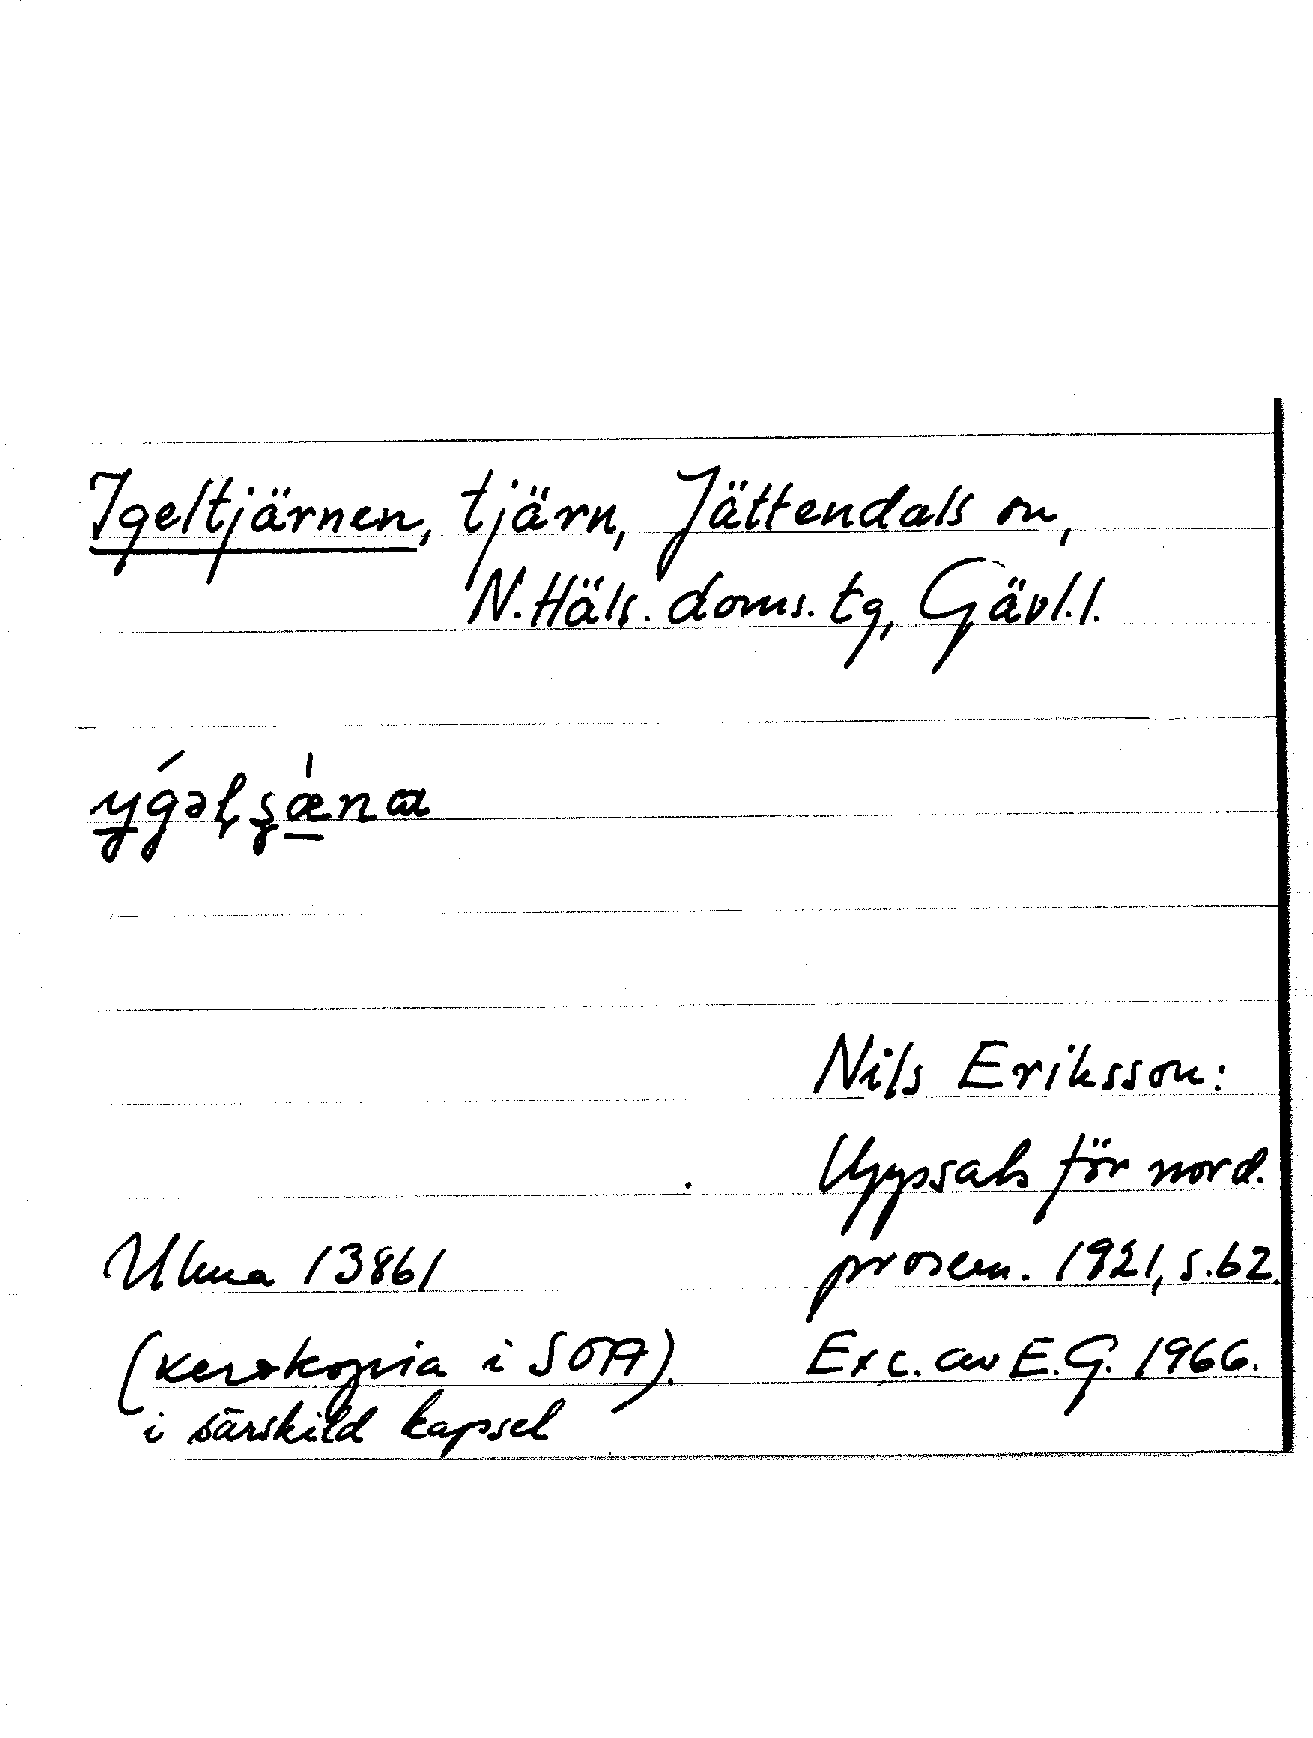 Igeltjärnen, tjärn, Jättendals sn,
N. Häls. doms. tg, Gävl. l.
Nils Eriksson:
Uppsats för nord.
Ulma 13861 prosem. 1921, s. 62.
(xerokopia i SOA). Exc. av E.G. 1966.
i särskild kapsel